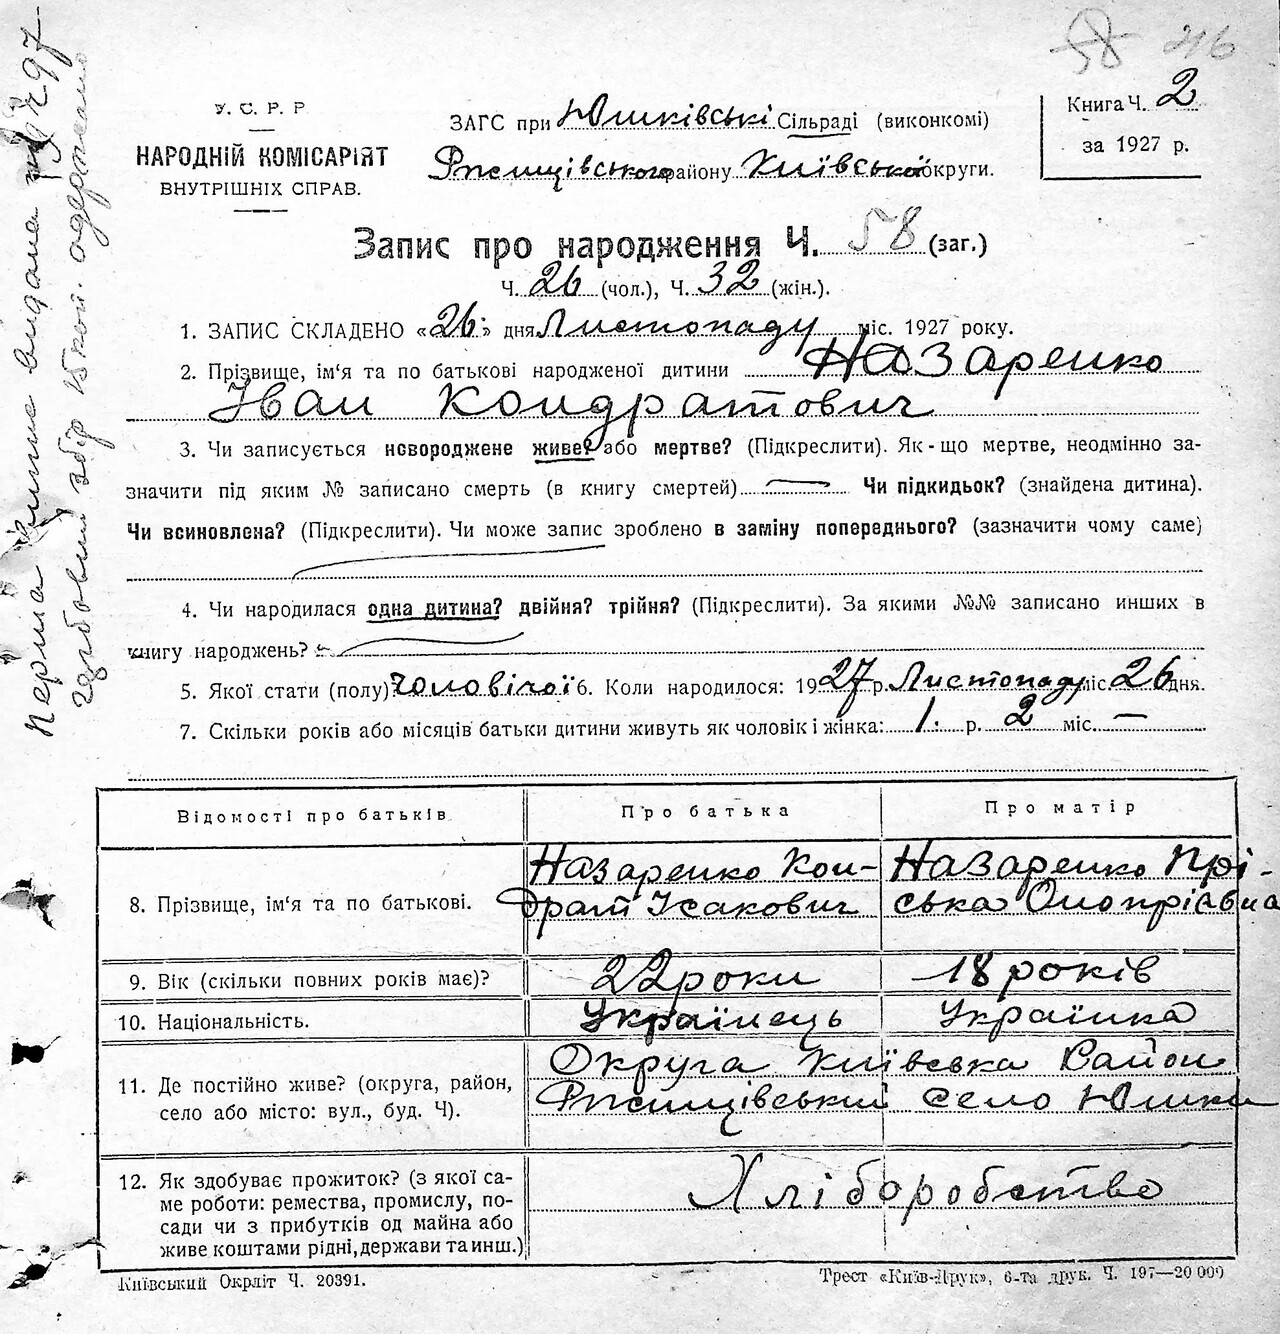 58 216
У. С. Р. Р.
НАРОДНІЙ КОМІСАРІЯТ
ВНУТРІШНІХ СПРАВ.
ЗАГС при Юшківські Сільраді (виконкомі)
Ржищівського району Київської округи.
Книга Ч. 2
за 1927 р.
Запис про народження Ч. 58 (заг.)
Ч. 26 (чол.), Ч. 32 (жін.).
1. ЗАПИС СКЛАДЕНО «26» дня Листопаду міс. 1927 року.
2. Прізвище, ім'я та по батькові народженої дитини Назаренко
Іван Кондратович
3. Чи записується новороджене живе? або мертве? (Підкреслити). Як-що мертве, неодмінно за-
значити під яким № записано смерть (в книгу смертей) — Чи підкидьок? (знайдена дитина).
Чи всиновлена? (Підкреслити). Чи може запис зроблено в заміну попереднього? (зазначити чому саме)
4. Чи народилася одна дитина? двійня? трійня? (Підкреслити). За якими №№ записано инших в
книгу народжень?
5. Якої стати (полу) чоловічої 6. Коли народилося: 1927 р. Листопаду міс. 26 дня.
7. Скільки років або місяців батьки дитини живуть як чоловік і жінка: 1 р. 2 міс. —
Відомості про батьків
Про батька
Про матір
8. Прізвище, ім'я та по батькові.
Назаренко Кон-
драт Ісакович
Назаренко Прі-
ська Онопріївна
9. Вік (скільки повних років має)?
22 роки
18 років
10. Національність.
Українець
Українка
11. Де постійно живе? (округа, район,
село або місто: вул., буд. Ч).
Округа Київська Район
Ржищівський село Юшки
12. Як здобуває прожиток? (з якої са-
ме роботи: ремества, промислу, по-
сади чи з прибутків од майна або
живе коштами рідні, держави та инш.)
Хліборобство
Київський Окрліт Ч. 20391.
Трест «Київ-Друк», 6-та друк. Ч. 197—20 000
видана
збір 15 коп. одержано